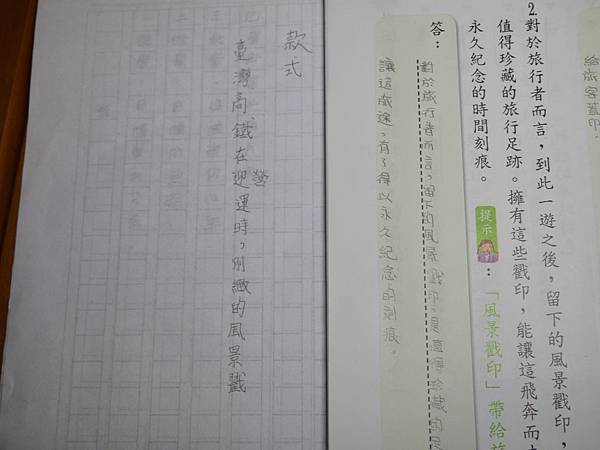 給旅客蓋印。
2.對於旅行者而言，到此一遊之後，留下的風景戳印，
值得珍藏的旅行足跡。擁有這些戳印，能讓這飛奔而
永久紀念的時間刻痕。 提示：「風景戳印」帶給
答：
對於旅行者而言，留下的風景戳印，是值得珍藏的足
讓這旅途，有了得以永久紀念的刻痕。
款式
臺灣高鐵在迎運時，別緻的風景戳
營